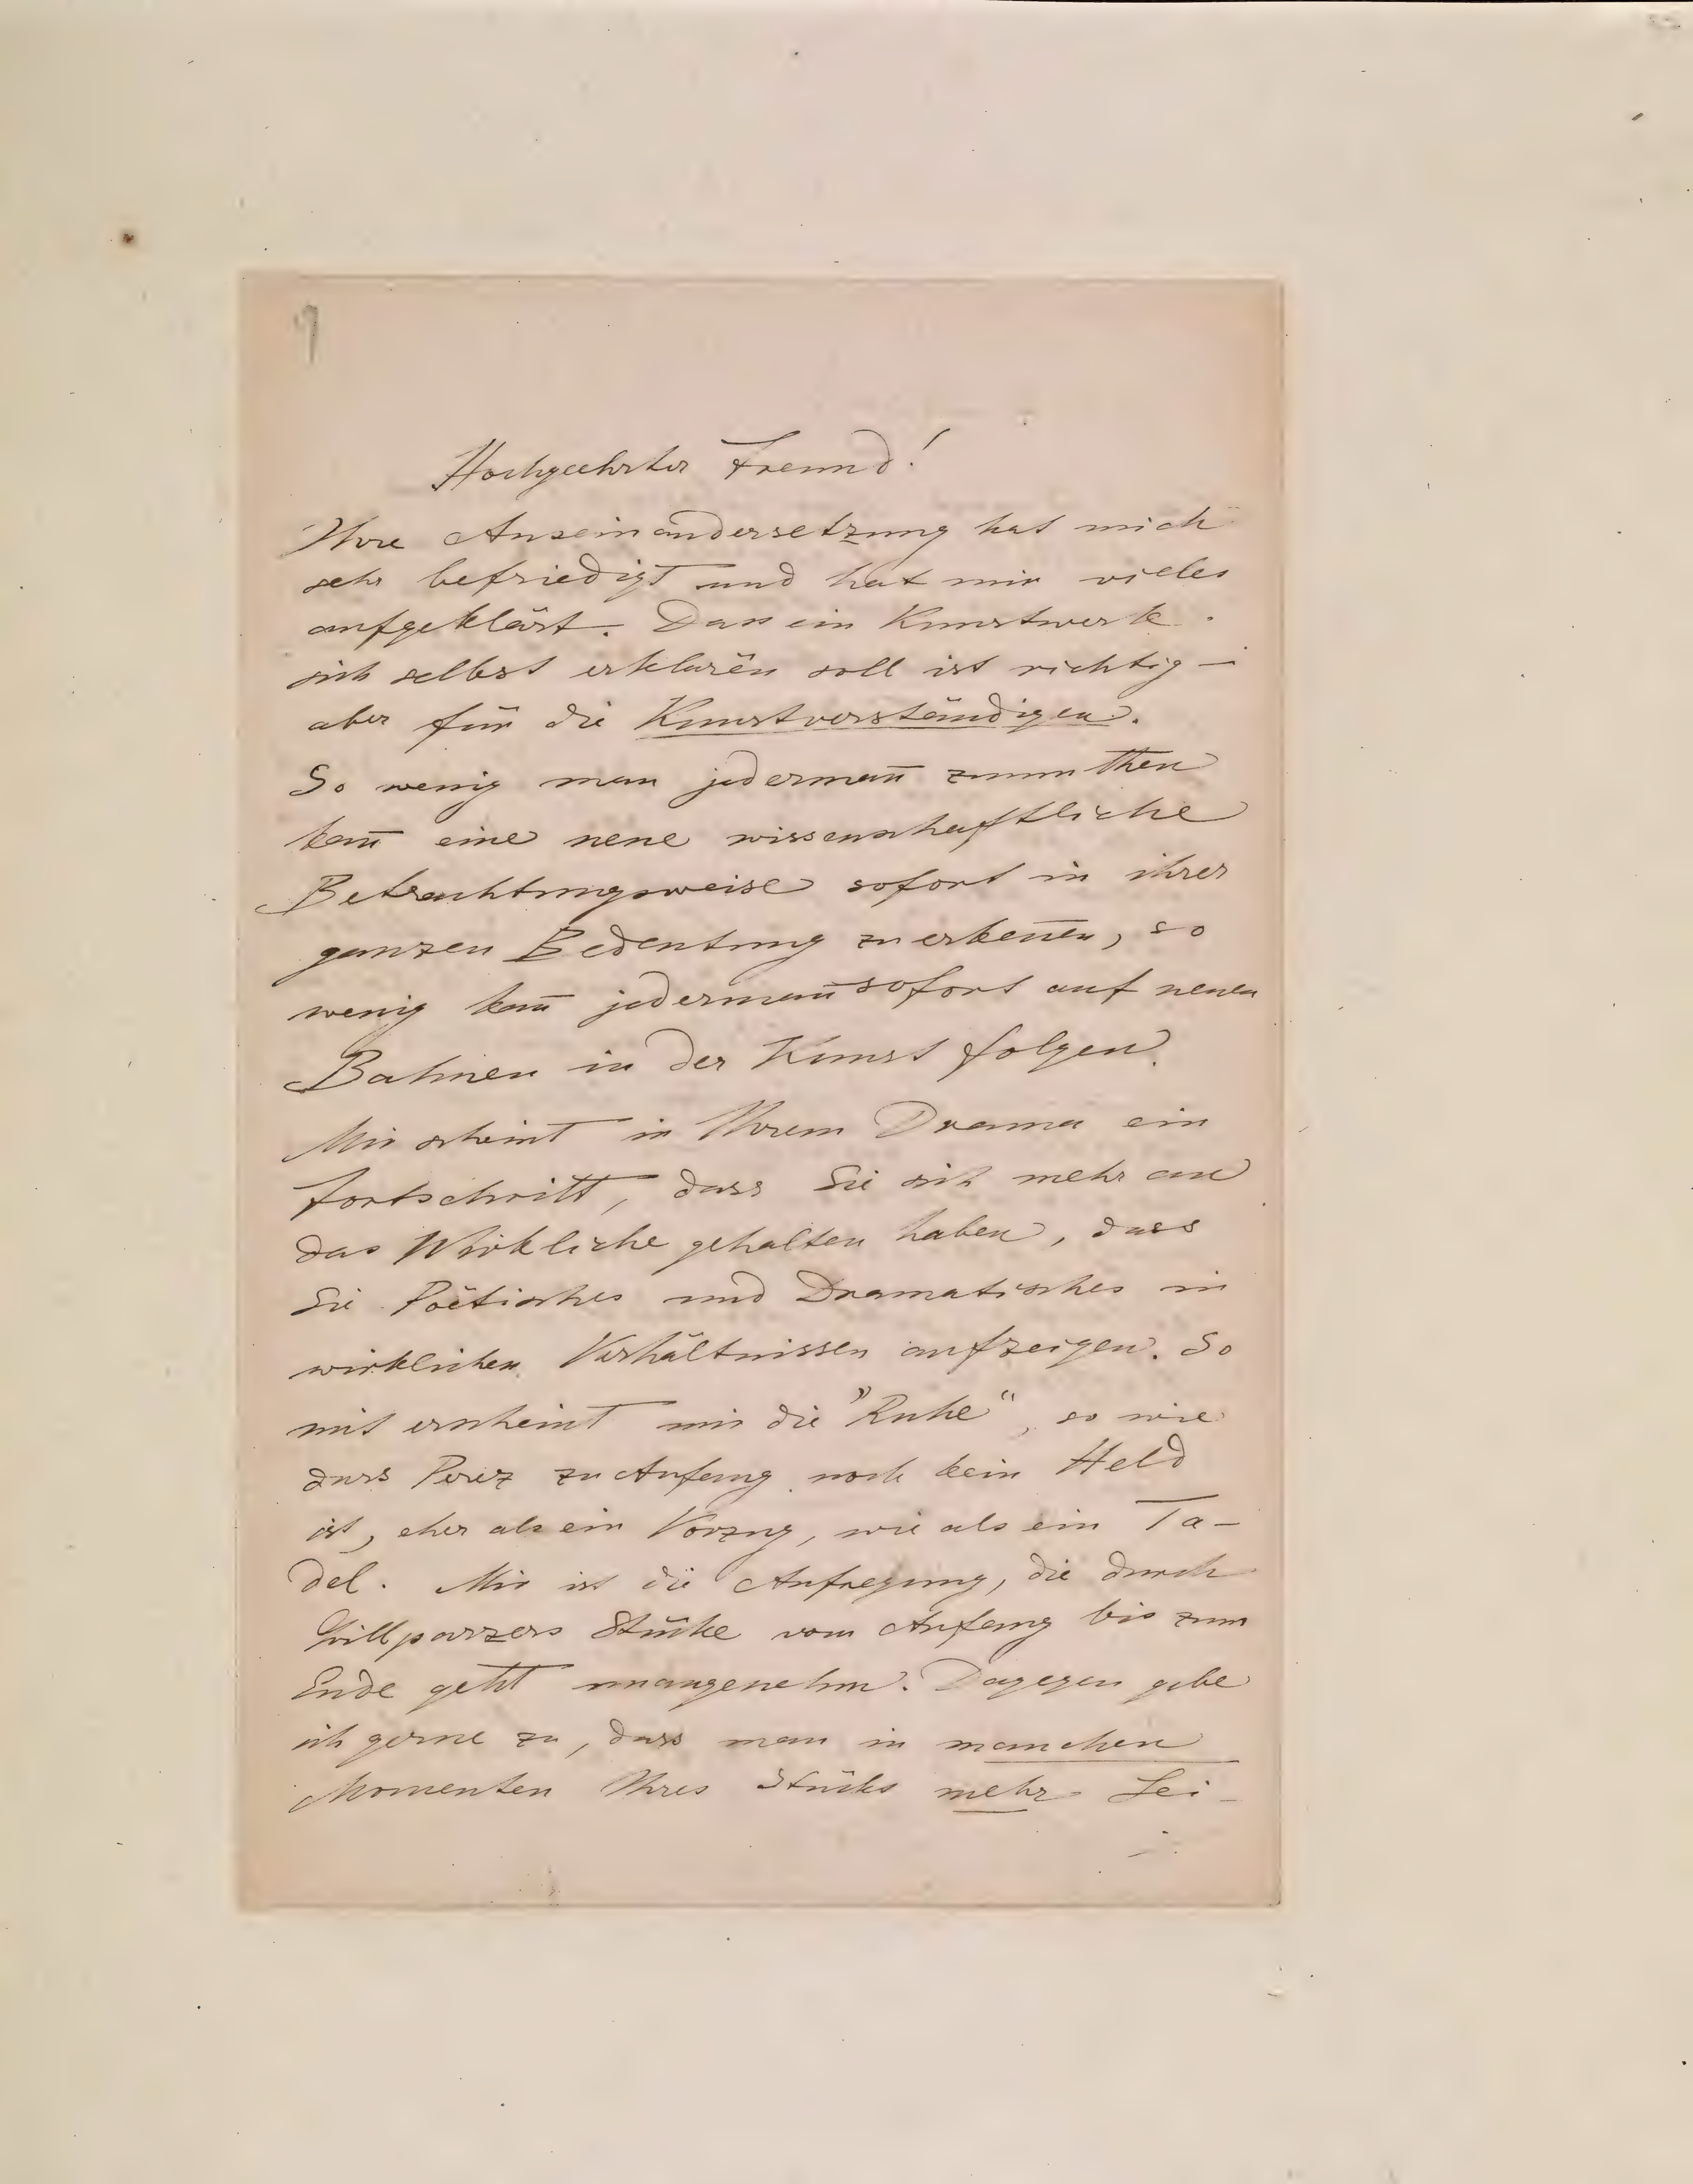 9
Hochgeehrter Freund!
Ihre Auseinandersetzung hat mich
sehr befriedigt und hat mir vieles
aufgeklärt. Dass ein Kunstwerk
sich selbst erklären soll ist richtig –
aber für die Kunstverständigen.
So wenig man jedermañ zumuthen
kañ eine neue wissenschaftliche
Betrachtungsweise sofort in ihrer
ganzen Bedeutung zu erkeñen, so
wenig kañ jedermañ sofort auf neuen
Bahnen in der Kunst folgen.
Mir scheint in Ihrem Drama ein
Fortschritt, dass Sie sich mehr an
das Wirkliche gehalten haben, dass
Sie Poëtisches und Dramatisches in
wirklichen Verhältnissen aufzeigen. So
mit erscheint mir die "Ruhe", so wie
dass Perez zu Anfang noch kein Held
ist, eher als ein Vorzug, wie als ein Ta-
del. Mir ist die Aufregung, die durch
Grillparzers Stücke vom Anfang bis zum
Ende geht unangenehm. Dagegen gebe
ich gerne zu, dass man in manchen
Momenten Ihres Stücks mehr Lei-